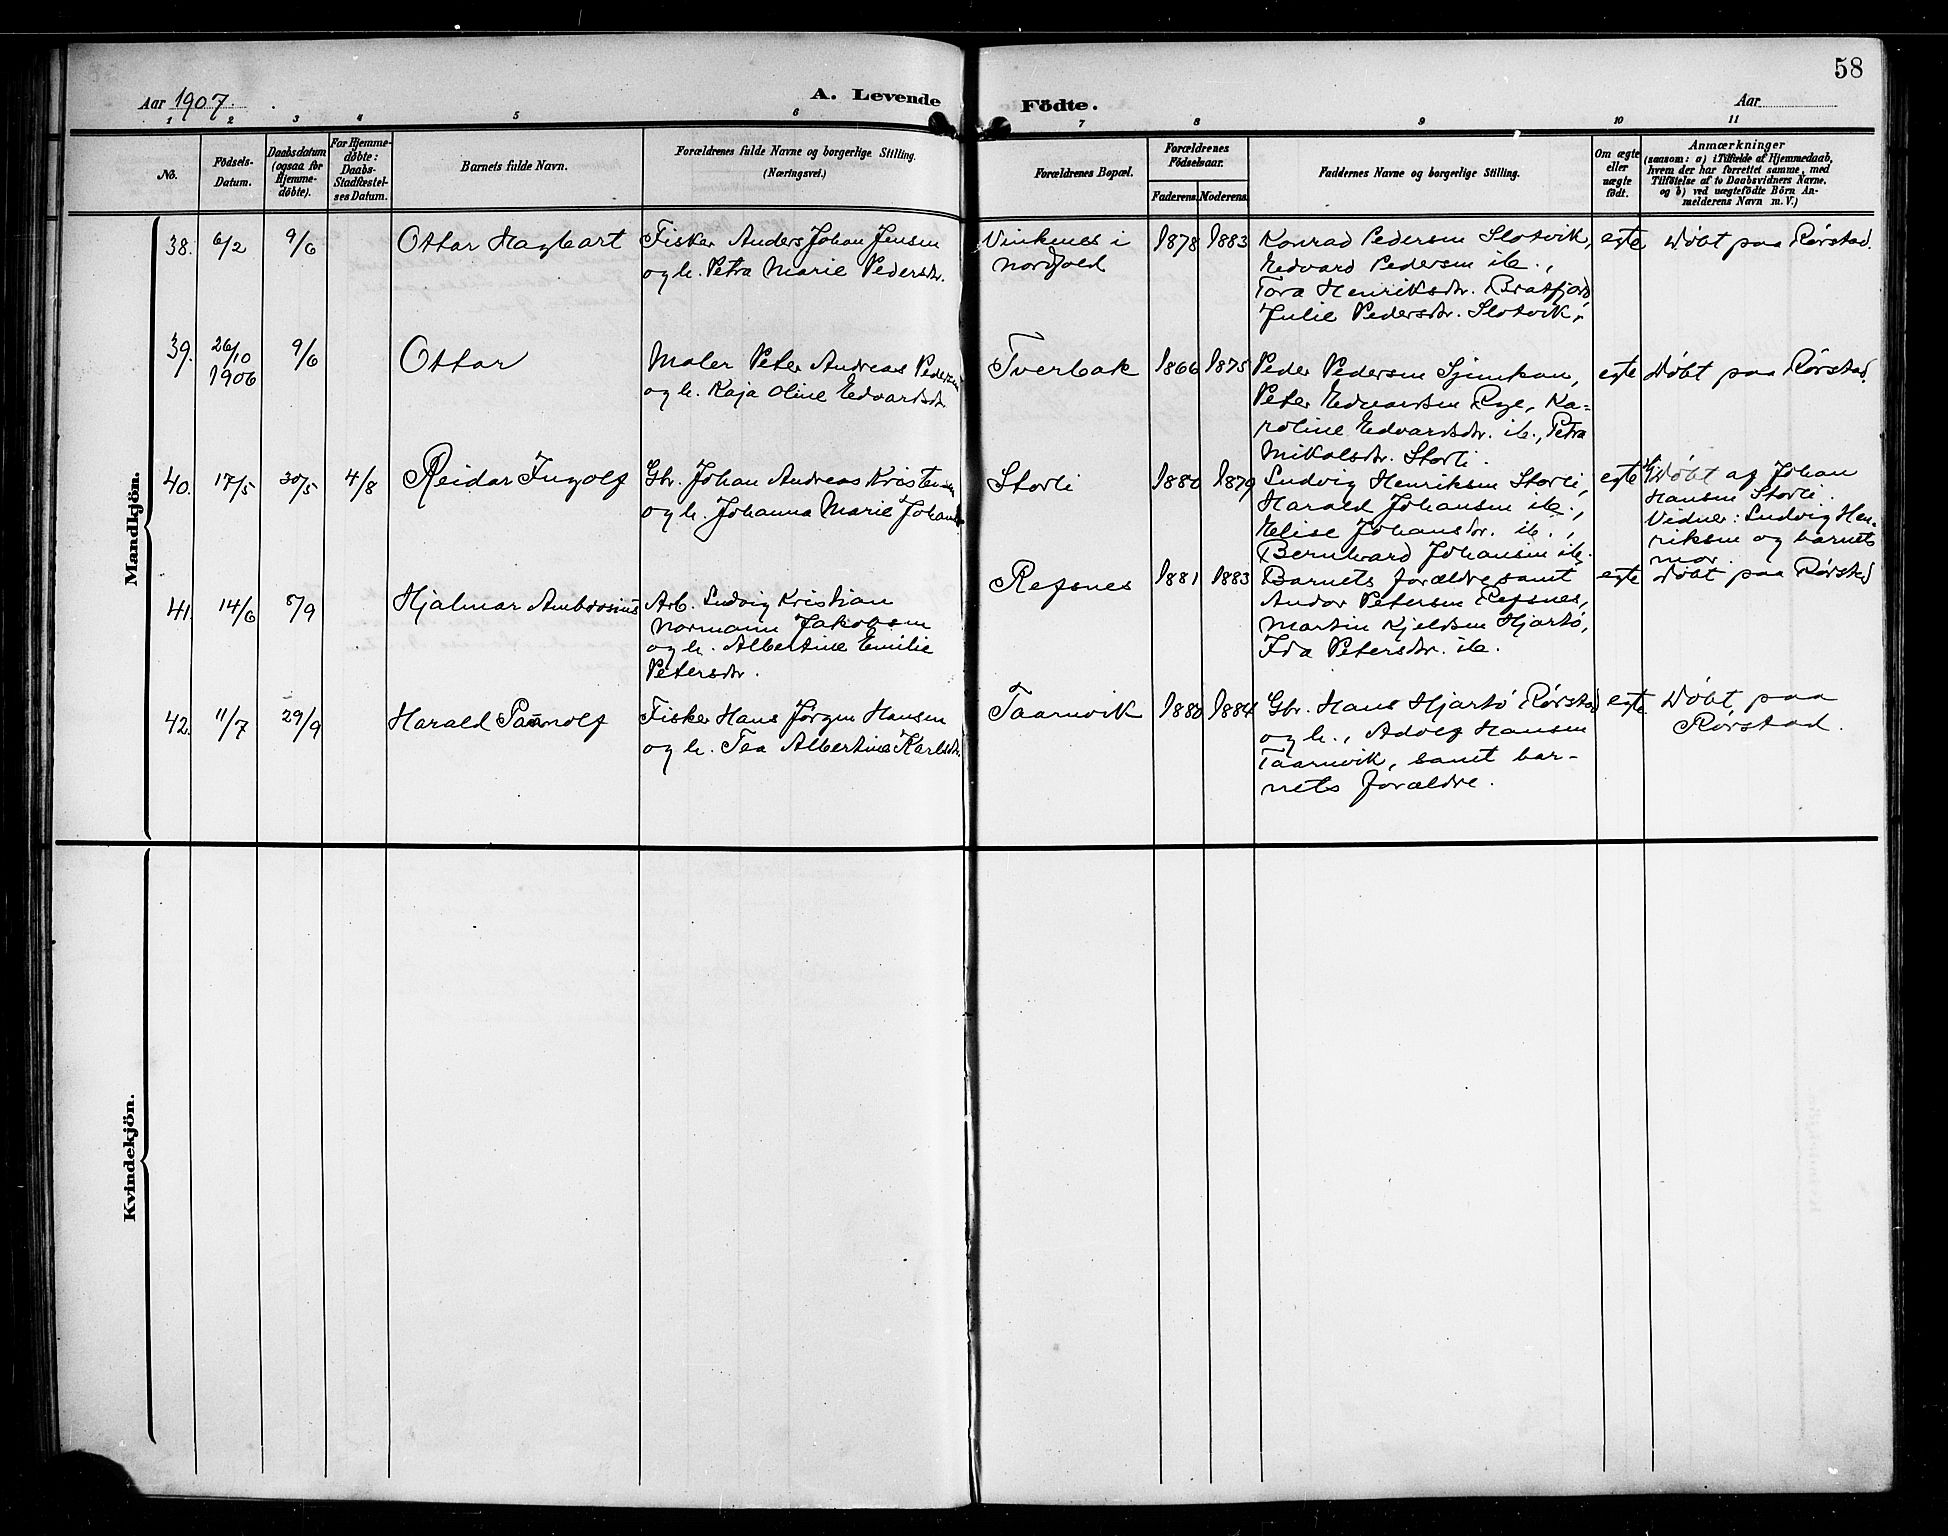 58
Aar 1907.
A. Levende
Födte.
Aar
1 2 3 4 5 6 7 8 9 10 11
No.
Födsels-
Datum.
Daabsdatum
(ogsaa for
Hjemme-
döbte).
For Hjemme-
döbte:
Daabs-
Stadfæstel-
ses Datum.
Barnets fulde Navn.
Forældrenes fulde Navne og borgerlige Stilling.
(Næringsvei.)
Forældrenes Bopæl.
Forældrenes
Födselsaar.
Faderens Moderens
Faddernes Navne og borgerlige Stilling.
Om ægte
eller
uægte
födt.
Anmærkninger
(saasom: a) i Tilfælde af Hjemmedaab,
hvem der har forrettet samme, med
Tilföielse af to Daabsvidners Navne,
og b) ved uægtefödte Börn An-
melderens Navn m. V.)
Mandkjön.
38. 6/2 9/6
Ottar Hagbart
Fisker Anders Johan Jensen
og h. Petra Marie Pedersdr.
Vinkenes i
Nordfold
1878 1883
Konrad Pedersen Slotvik,
Edvard Pedersen ib.,
Tora Henriksdr. Bratfjord,
Julie Pedersdr. Slotvik.
egte
Døbt paa Rørstad.
39. 26/10
1906
9/6
Ottar
Maler Peter Andreas Pedersen
og h. Kaja Oline Edvardsdr.
Tverbak
1866 1875
Peder Pedersen
Peter Edvardsen Ka-
roline Edvardsdr. ib., Petra
Mikalsdr. Storli.
egte
Døbt paa Rørstad.
40. 17/5 30/5 4/8
Reidar Ingolf
Gbr. Johan Andreas Kristensen
og h. Johanna Marie Johansdr.
Storli
1880 1879
Ludvig Henriksen Storli,
Harald Johansen ib.,
Elise Johansdr. ib.,
Bernhard Johansen ib.
egte
Døbt af Johan
Hansen Storli.
Vidner: Ludvig Hen-
riksen og barnets
mor.
41. 14/6 8/9
Hjalmar Ambrosius
Arb. Ludvig Kristian
Normann Jakobsen
og h. Albertine Emilie
Petersdr.
Refsnes
1881 1883
Barnets forældre samt
Andor Petersen Refsnes,
Martin Kjeldsen Hjartø,
Ida Petersdr. ib.
egte
Døbt paa Rørstad
42. 11/7 29/9
Harald
Fisker Hans Jørgen Hansen
og h. Tea Albertine Karlsdr.
Taarnvik
1880 1884
Gbr. Hans Hjartø Rørstad
og h., Adolf Hansen
Taarnvik, samt bar-
nets forældre.
egte
Døbt paa
Rørstad.
Kvindekjön.